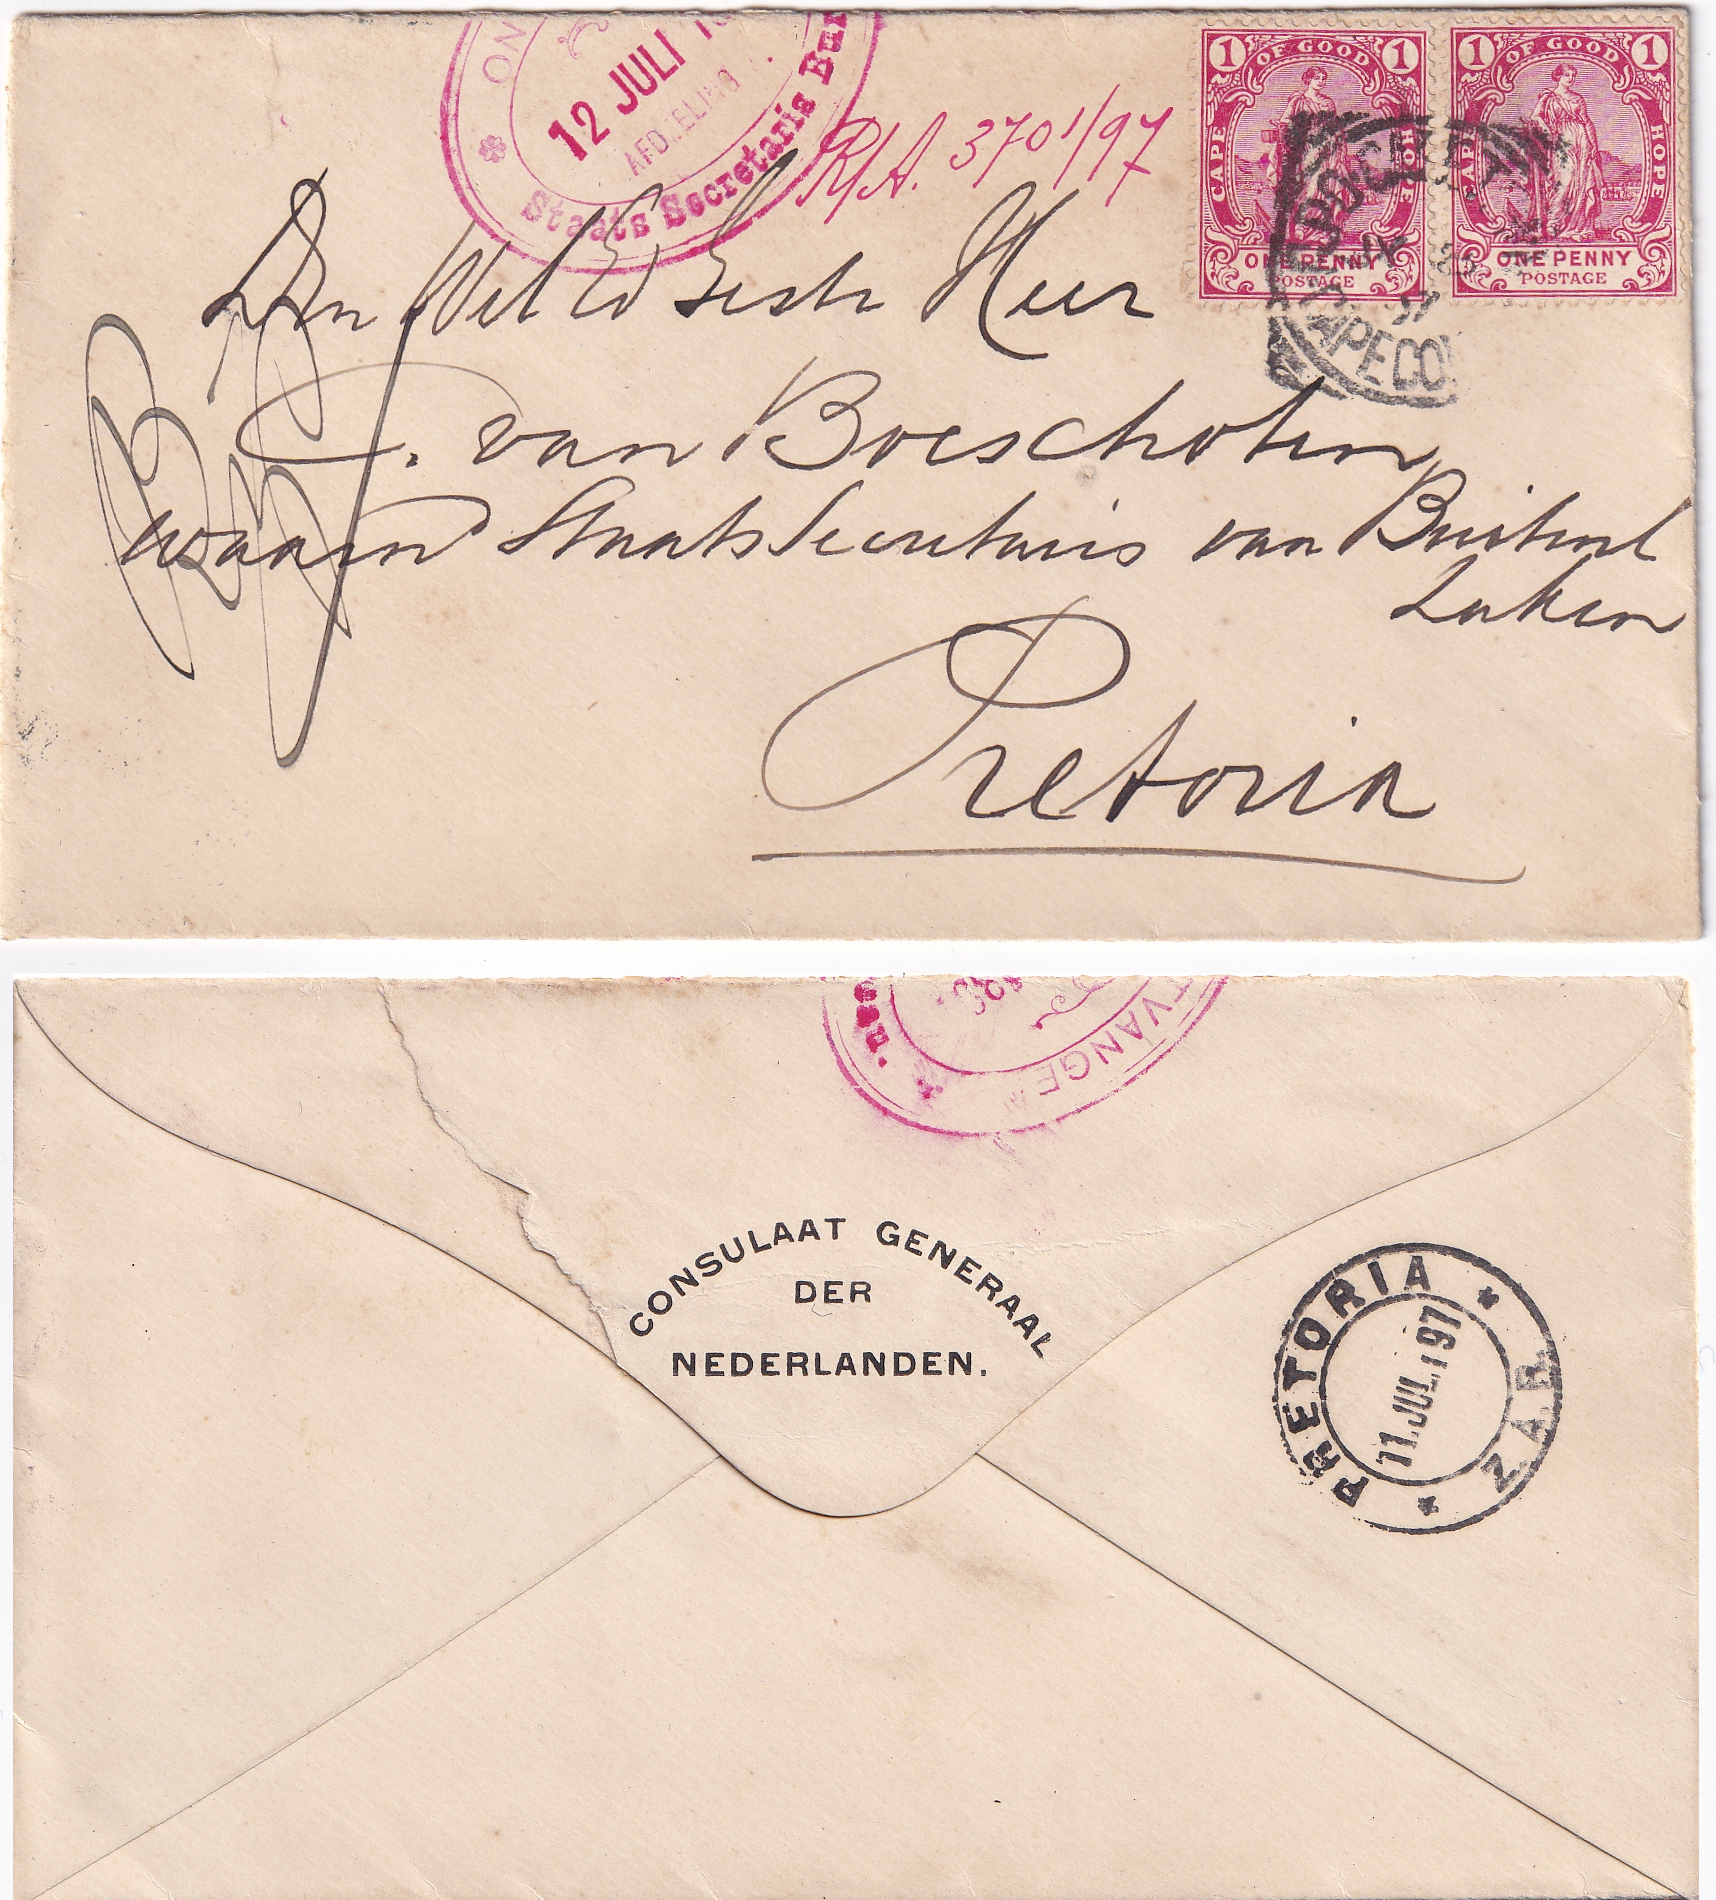 ON
12 JULI
AFD.
Staats Secretaris
R/A. 3701/97
1 OF GOOD 1
CAPE HOPE
ONE PENNY
POSTAGE
1 OF GOOD 1
CAPE HOPE
ONE PENNY
POSTAGE
97
CAPE CO
Den Wel Ed Gestr Heer
C. van Boeschoten
waarnd Staats Secretaris van Buitenl
Zaken
Pretoria
TVANGE
CONSULAAT GENERAAL
DER
NEDERLANDEN.
PRETORIA
11.JUL.97
Z.A.R.